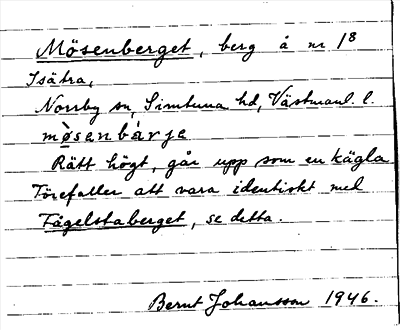 Mösenberget, berg å nr 1⁸
Isätra,
Norrby sn, Simtuna hd, Västmanl. l.
mø̀senbàrje
Rätt högt, går upp som en kägla.
Förefaller att vara identiskt med
Fågelstaberget, se detta.
Bernt Johansson 1946.